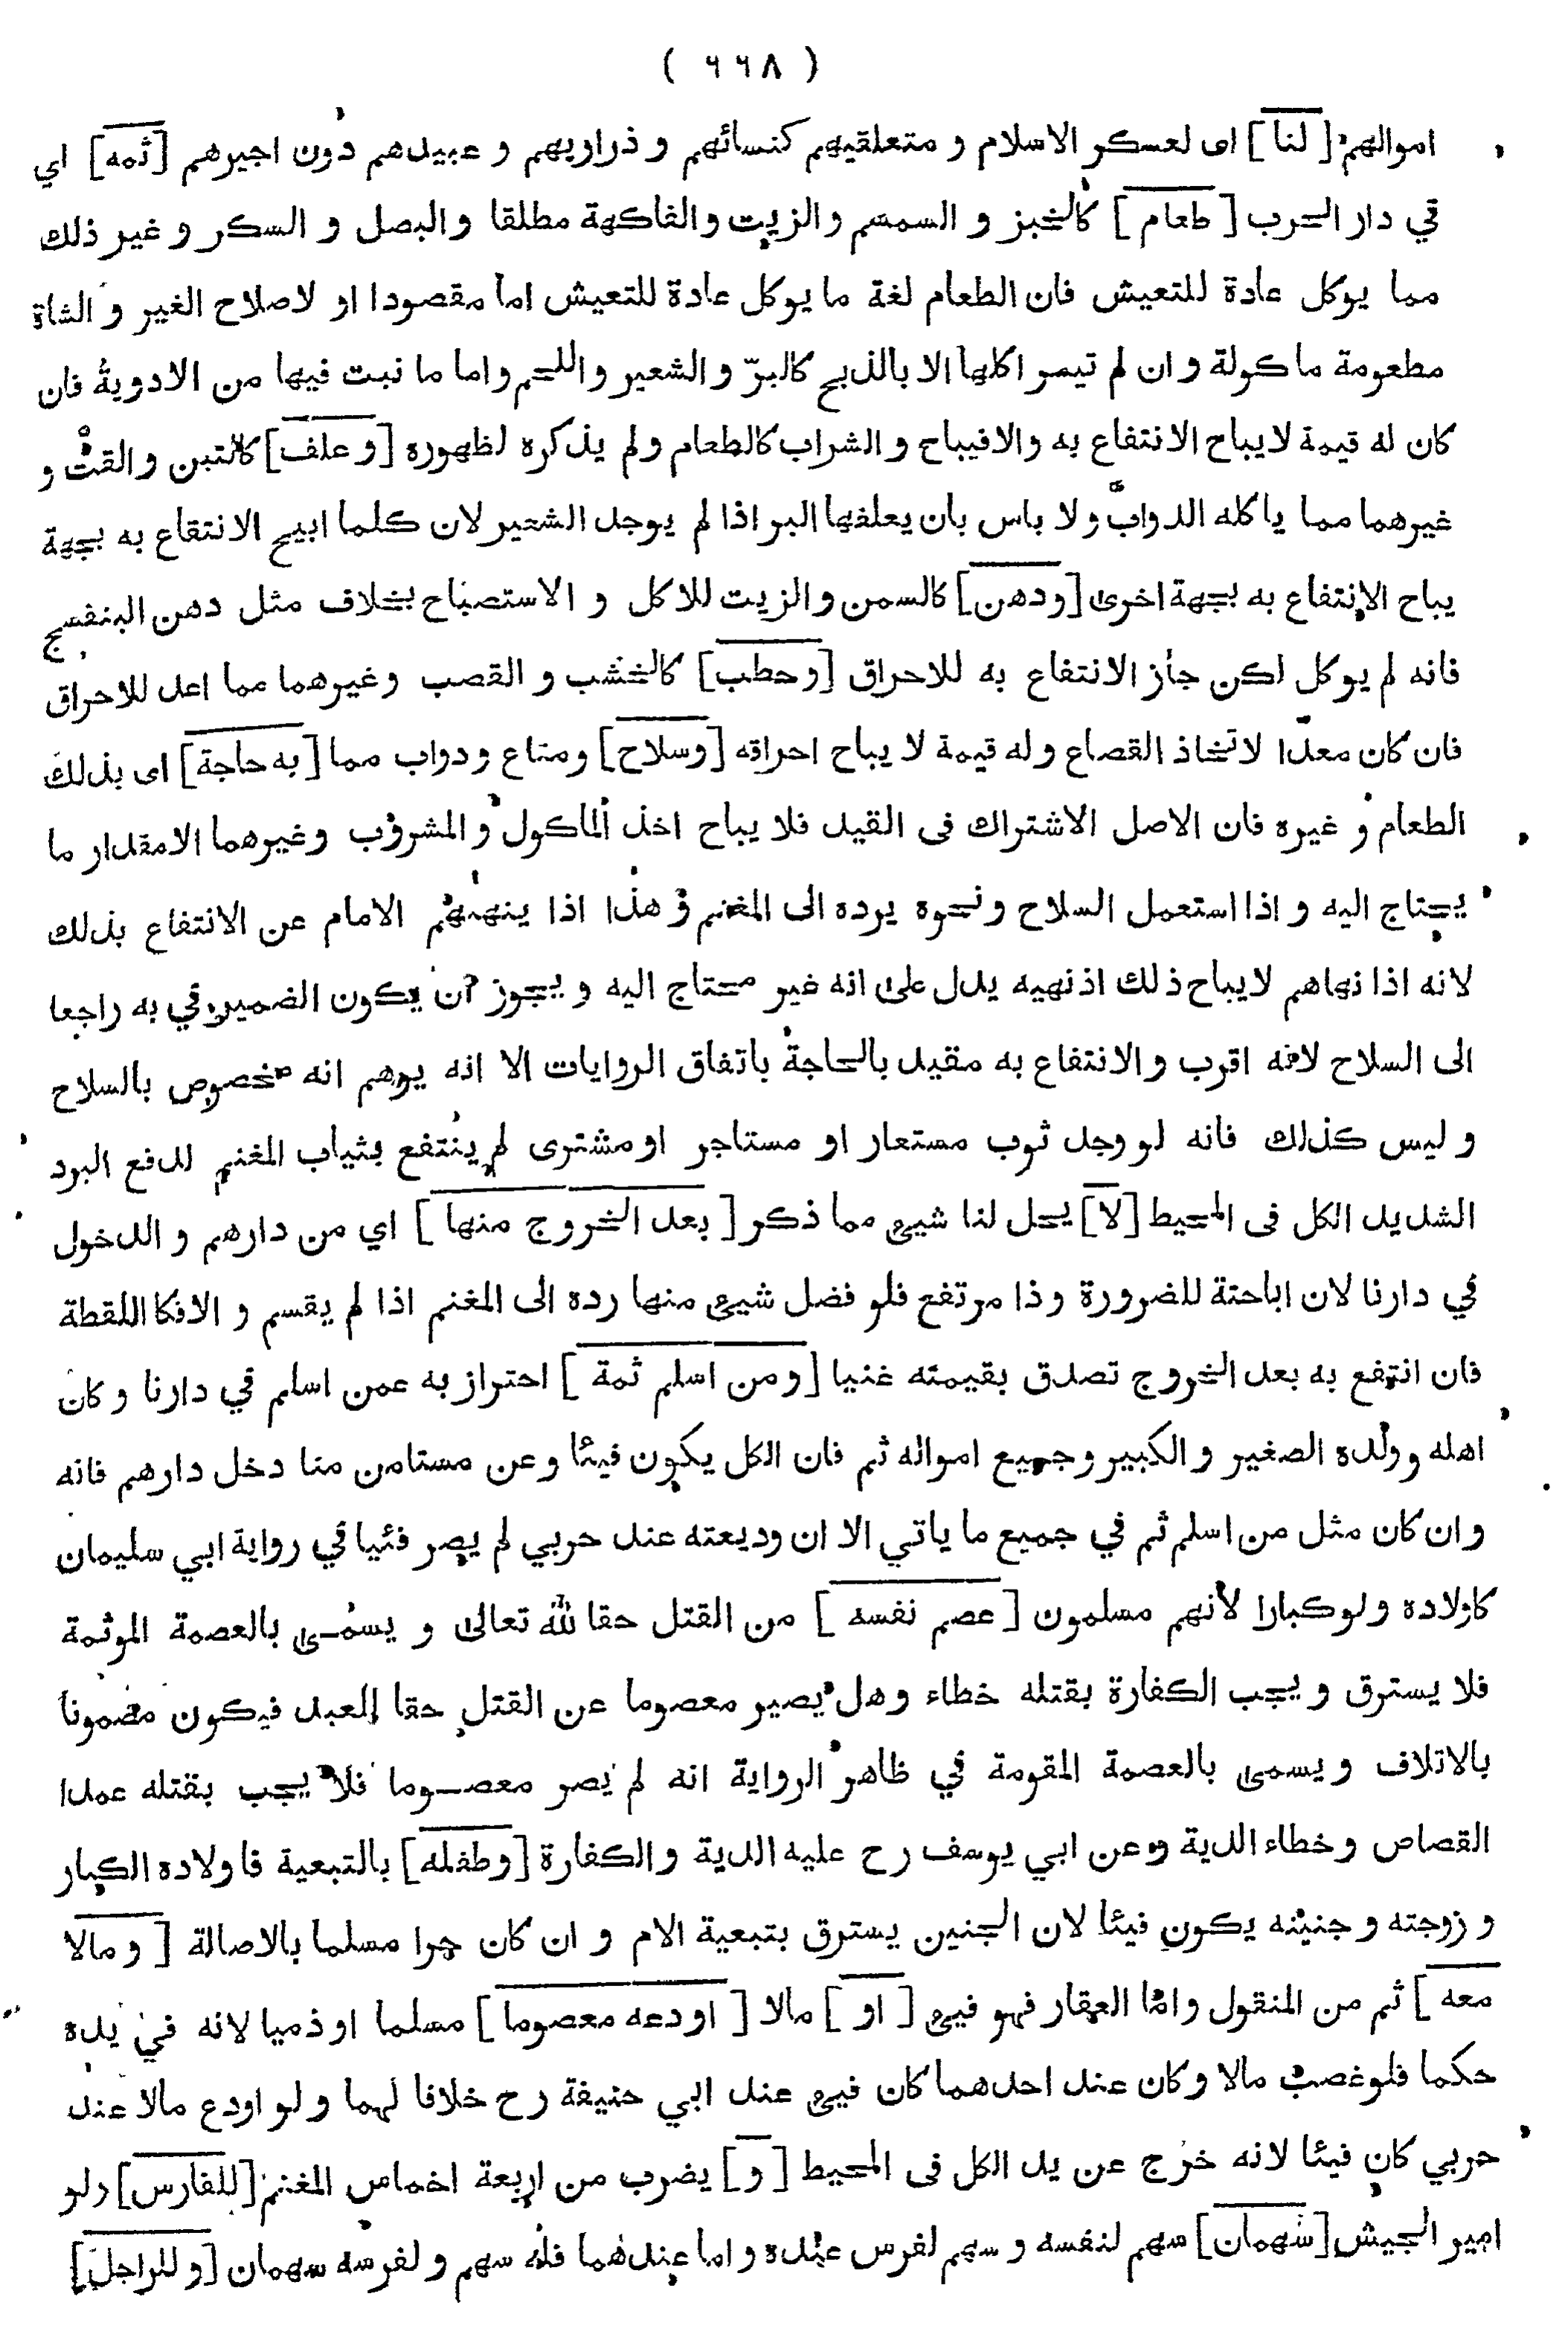 ( ٦٦٨ )
اموالهم [ لنا ] اى لعسكر الاسلام و متعلقيهم كنسائهم و ذراريهم و عبيدهم دون اجيرهم [ ثمه ] اي
في دار الحرب [ طعام ] كالخبز و السمسم والزيت والفاكهة مطلقا والبصل و السكر و غير ذلك
مما يوكل عادة للتعيش فان الطعام لغة ما يوكل عادة للتعيش اما مقصودا او لاصلاح الغير و الشاة
مطعومة ماكولة و ان لم تيسر اكلها الا بالذبح كالبرّ و الشعير واللحم واما ما نبت فيها من الادوية فان
كان له قيمة لايباح الانتفاع به والا فيباح و الشراب كالطعام ولم يذكره لظهوره [ و علف ] كالتبن والقت و
غيرهما مما ياكله الدوابّ ولا باس بان يعلفها البر اذا لم يوجد الشعير لان كلما ابيح الانتفاع به بجهة
يباح الانتفاع به بجهة اخرى [ ودهن ] كالسمن والزيت للاكل و الاستصباح بخلاف مثل دهن البنفسج
فانه لم يوكل لكن جاز الانتفاع به للاحراق [ وحطب ] كالخشب و القصب وغيرهما مما اعد للاحراق
فان كان معدّا لاتخاذ القصاع وله قيمة لا يباح احراقه [ وسلاح ] ومتاع ودواب مما [ به حاجة ] اى بذلك
الطعام و غيره فان الاصل الاشتراك فى القيد فلا يباح اخذ الماكول و المشروب وغيرهما الامقدار ما
يحتاج اليه و اذا استعمل السلاح ونحوه يرده الى المغنم و هذا اذا ينههم الامام عن الانتفاع بذلك
لانه اذا نهاهم لايباح ذلك اذنهيه يدل على انه غير محتاج اليه و يجوز ان يكون الضمير في به راجعا
الى السلاح لانه اقرب والانتفاع به مقيد بالحاجة باتفاق الروايات الا انه يوهم انه مخصوص بالسلاح
و ليس كذلك فانه لو وجد ثوب مستعار او مستاجر او مشترى لم ينتفع بثياب المغنم لدفع البرد
الشديد الكل فى المحيط [ لا ] يحل لنا شيئ مما ذكر [ بعد الخروج منها ] اي من دارهم و الدخول
في دارنا لان اباحتة للضرورة وذا مرتفع فلو فضل شيئ منها رده الى المغنم اذا لم يقسم و الافكا اللقطة
فان انتفع به بعد الخروج تصدق بقيمته غنيا [ ومن اسلم ثمة ] احتراز به عمن اسلم في دارنا و كان
اهله وولده الصغير والكبير وجميع امواله ثم فان الكل يكون فيئا وعن مستامن منا دخل دارهم فانه
و ان كان مثل من اسلم ثم في جميع ما ياتي الا ان وديعته عند حربي لم يصر فئيا في رواية ابي سليمان
كاولاده ولو كبارا لأنهم مسلمون [ عصم نفسه ] من القتل حقا لله تعالى و يسمى بالعصمة الموثمة
فلا يسترق ويجب الكفارة بقتله خطاء وهل يصير معصوما عن القتل حقا للعبد فيكون مضمونا
بالاتلاف ويسمى بالعصمة المقومة في ظاهر الرواية انه لم يصر معصوما فلا يجب بقتله عمدا
القصاص وخطاء الدية وعن ابي يوسف رح عليه الدية والكفارة [ وطفله ] بالتبعية فاولاده الكبار
و زوجته وجنينه يكون فيئا لان الجنين يسترق بتبعية الام و ان كان حرا مسلما بالاصالة [ و مالا
معه ] ثم من المنقول وامّا العقار فهو فيئ [ او ] مالا [ اودعه معصوما ] مسلما او ذميا لانه في يده
حكما فلوغصب مالا وكان عند احدهما كان فيئ عند ابي حنيفة رح خلافا لهما ولو اودع مالا عند
حربي كان فيئا لانه خرج عن يد الكل فى المحيط [ و ] يضرب من اربعة اخماس المغنم [ للفارس ] ولو
امير الجيش [ سهمان ] سهم لنفسه و سهم لفرس عنده واما عندهما فله سهم ولفرسه سهمان [ و للراجل ]